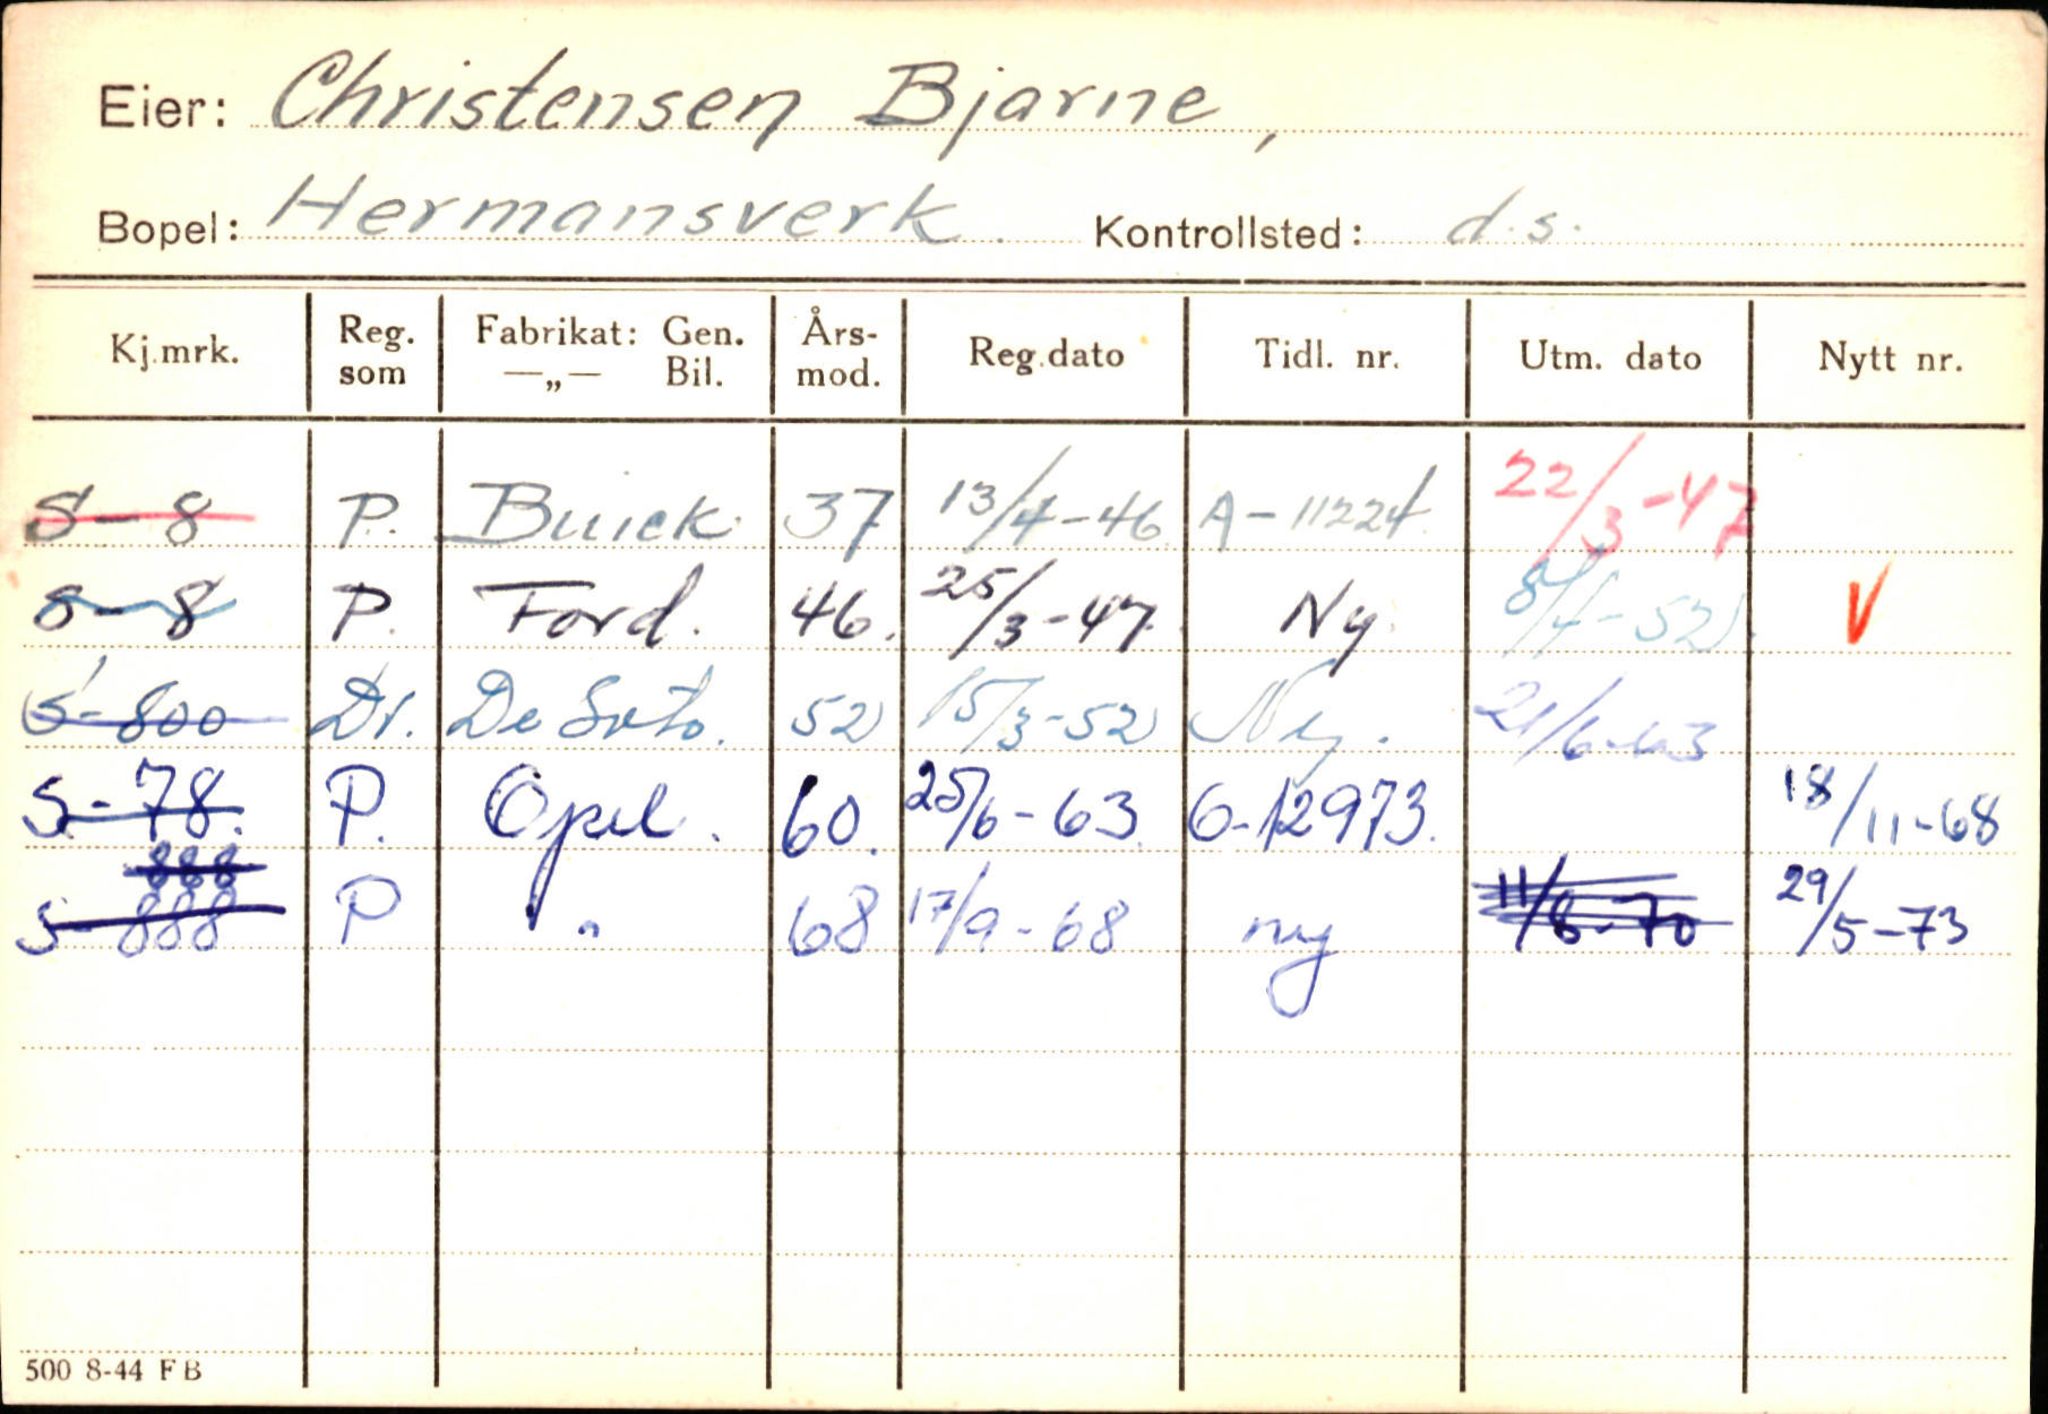 Eier: Christensen Bjarne,
Bopel: Hermansverk. Kontrollsted: d.s.
Kj.mrk. Reg. som Fabrikat: Gen. —„— Bil. Års-mod. Reg.dato Tidl. nr. Utm. dato Nytt nr.
S-8 P. Buick 37 13/4-46 A-11224 22/3-47
S-8 P. Ford. 46. 25/3-47 Ny. 8/4-52 V
S-800 Dr. De Soto. 52 15/3-52 Ny. 21/6-63
S-78. P. Opel. 60. 25/6-63 C-12973. 18/11-68
888
S-888 P " 68 17/9-68 ny 11/8-70 29/5-73
500 8-44 F B